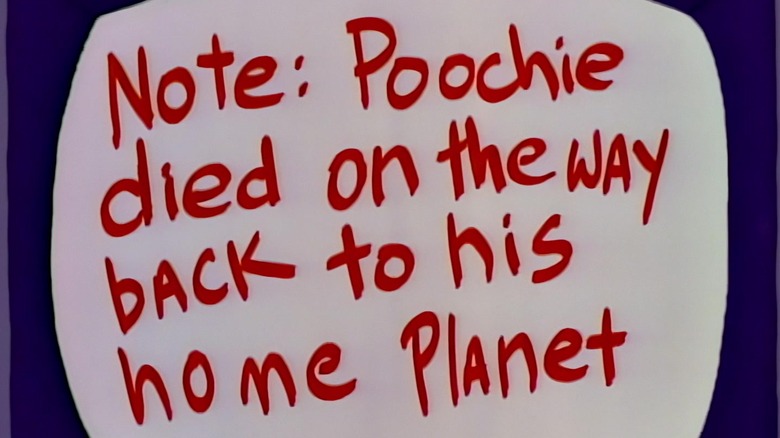 Note: Poochie
died on the WAY
bACK to his
home PlAnet